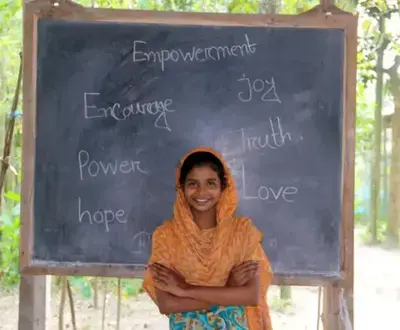 Empowerment
Encourage
joy
Truth.
Power
Love
hope